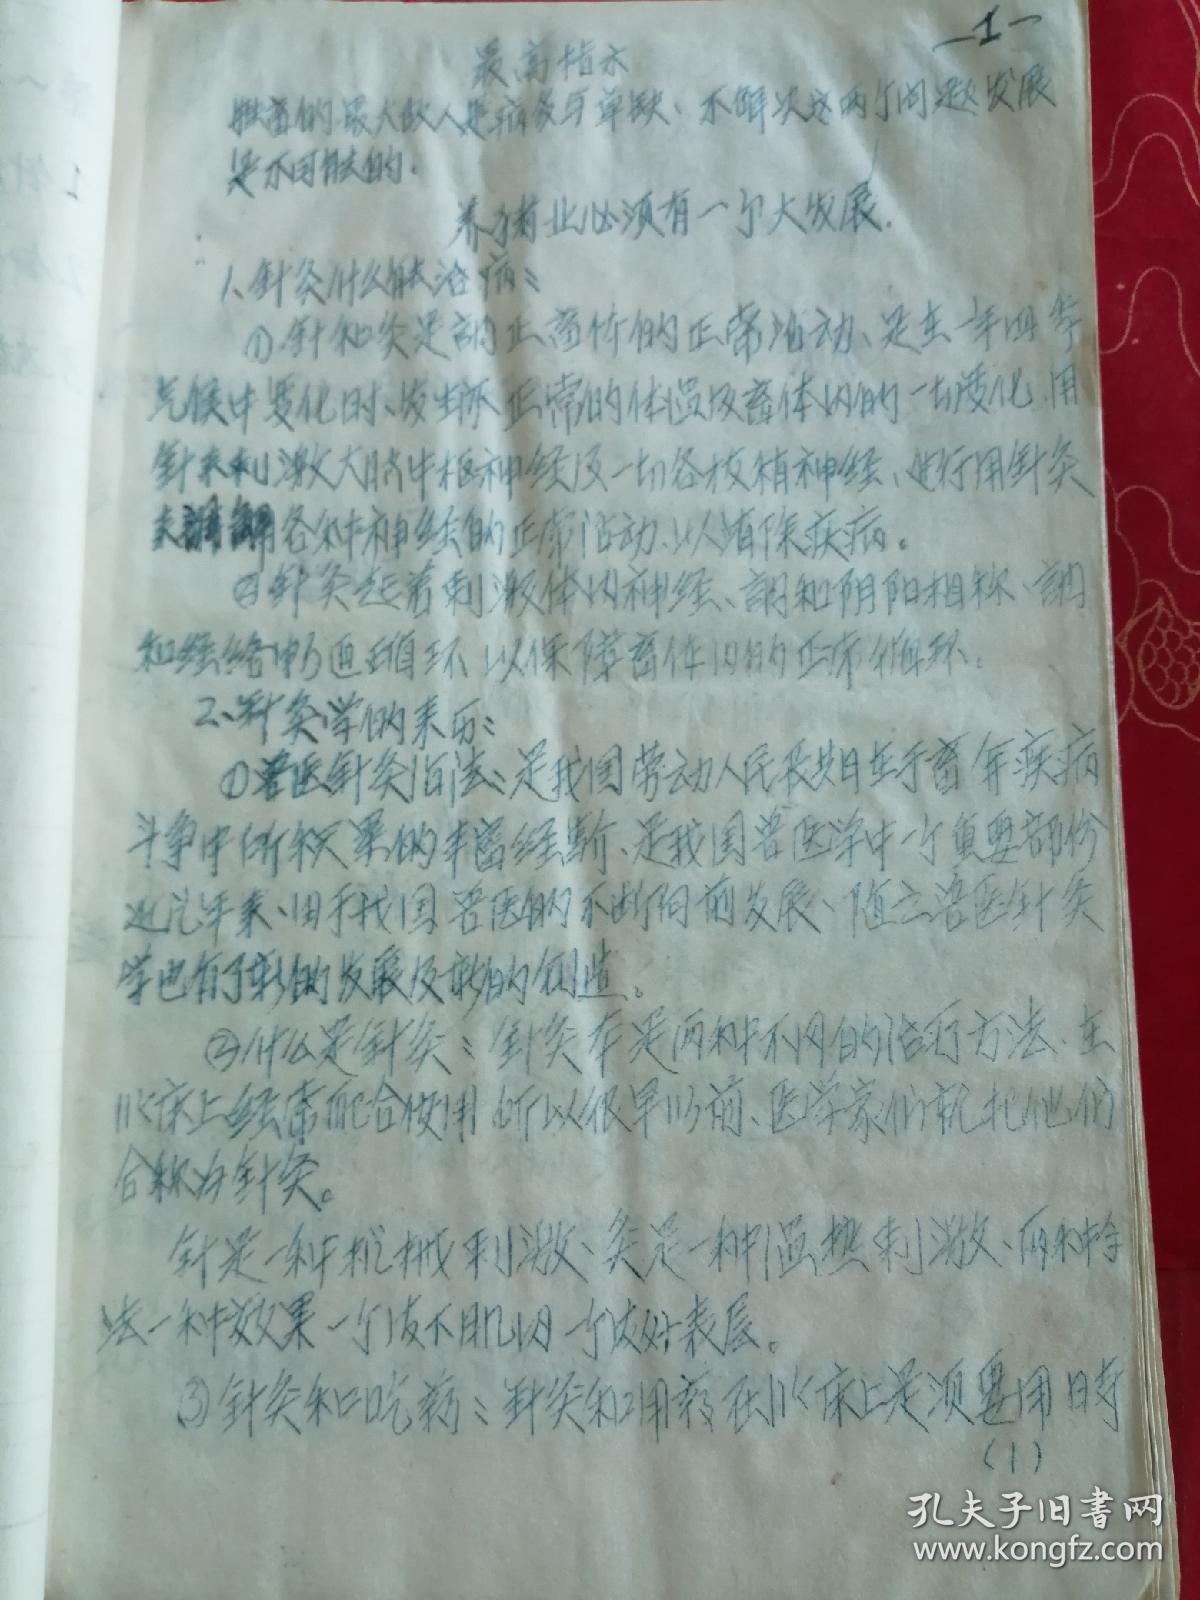 —1—
最高指示
牲畜的最大敌人是病多与草缺、不解决这两个问题发展
是不可能的.
养猪业必须有一个大发展.
1、针灸什么能治病：
①、针和灸是調正畜体的正常活动、是在一年四季
气候中变化时、发生不正常的体温及畜体内的一切变化用
针来刺激大脑中枢神经及一切各枝梢神经、进行用针灸
来調解各种神经的正常活动、以消除疾病。
②针灸起着刺激体内神经、調和阴阳相称、調
和经络畅通循环 以保障畜体内的正常循环。
2、针灸学的来历：
①兽医针灸治法、是我国劳动人民长期在于畜年疾病
斗争中所积累的丰富经验、是我国兽医学中一个重要部份
近几年来、由于我国兽医的不断向前发展、随之兽医针灸
学也有了新的发展及新的创造。
②什么是针灸：针灸本是两种不同的治疗方法、在
临床上经常配合使用 所以很早以前、医学家们就把他们
合称为针灸。
针是一种机械刺激、灸是一种温热刺激、两种方
法一种效果一个皮下肌内一个皮外表层。
③针灸和吃药：针灸和用药在临床上是须要用时
(1)
孔夫子旧书网
www.kongfz.com